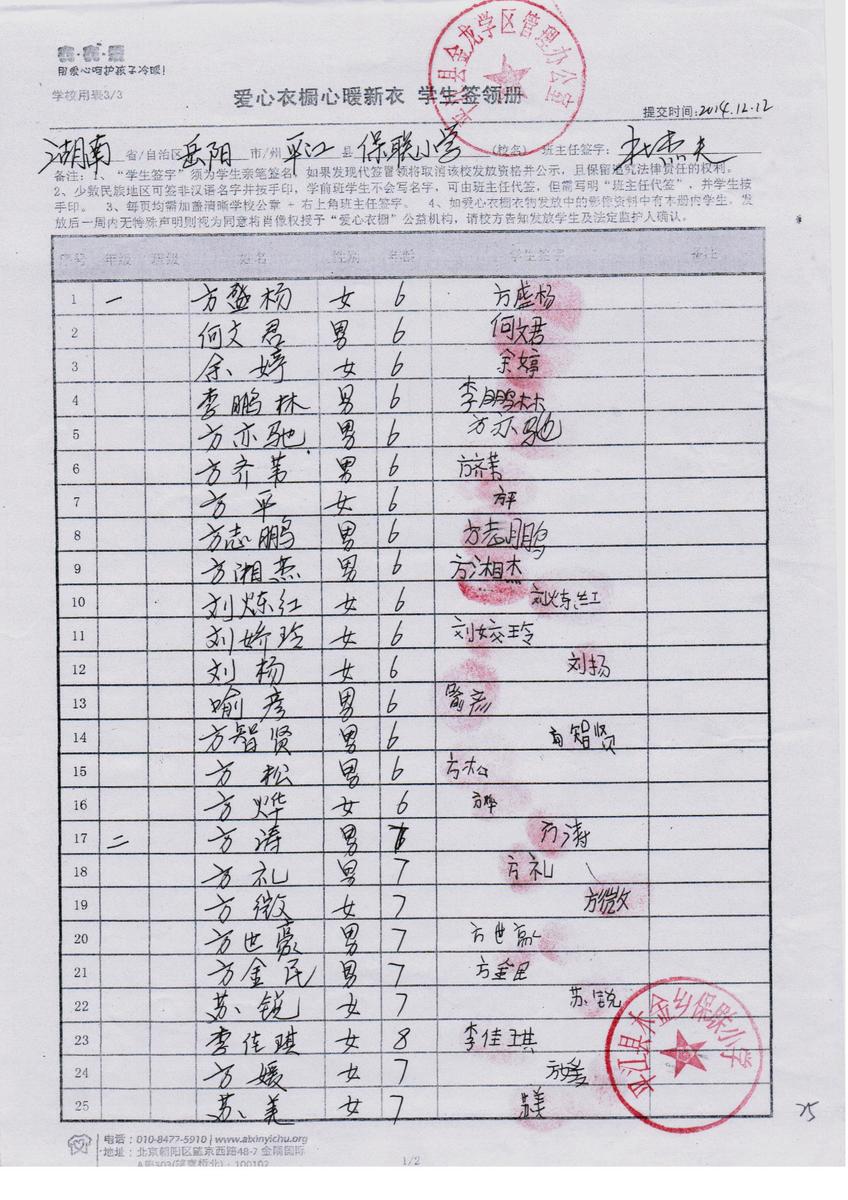 用爱心呵护孩子冷暖!
学校用表3/3
爱心衣橱心暖新衣 学生签领册
提交时间:2014.12.12
湖南 省/自治区 岳阳 市/州 平江 县 保联小学 (校名) 班主任签字:
备注:1、“学生签字”须为学生亲笔签名,如果发现代签冒领将取消该校发放资格并公示,且保留追究法律责任的权利。
2、少数民族地区可签非汉语名字并按手印,学前班学生不会写名字,可由班主任代签,但需写明“班主任代签”,并学生按
手印。 3、每页均需加盖清晰学校公章 + 右上角班主任签字。 4、如爱心衣橱衣物发放中的影像资料中有本册内学生,发
放后一周内无特殊声明则视为同意将肖像权授予“爱心衣橱”公益机构,请校方告知发放学生及法定监护人确认。
序号 年级 班级 姓名 性别 年龄 学生签字 备注
1 一 方盛杨 女 6 方盛杨
2 何文君 男 6 何文君
3 余婷 女 6 余婷
4 李鹏林 男 6 李鹏林
5 方亦驰 男 6 方亦驰
6 方齐苇 男 6 方齐苇
7 方平 女 6 方平
8 方志鹏 男 6 方志鹏
9 方湘杰 男 6 方湘杰
10 刘炼红 女 6 刘炼红
11 刘娇玲 女 6 刘姣玲
12 刘杨 女 6 刘扬
13 喻彦 男 6 喻彦
14 方智贤 男 6 方智贤
15 方松 男 6 方松
16 方烨 女 6 方烨
17 二 方涛 男 方涛
18 方礼 男 7 方礼
19 方微 女 7 方微
20 方世豪 男 7 方世豪
21 方金民 男 7 方金民
22 苏锐 女 7 苏锐
23 李佳琪 女 8 李佳琪
24 方媛 女 7 方媛
25 苏美 女 7 苏美
25
电话:010-8477-5910 | www.aixinyichu.org
地址:北京朝阳区望京西路48-7 金隅国际
1/2